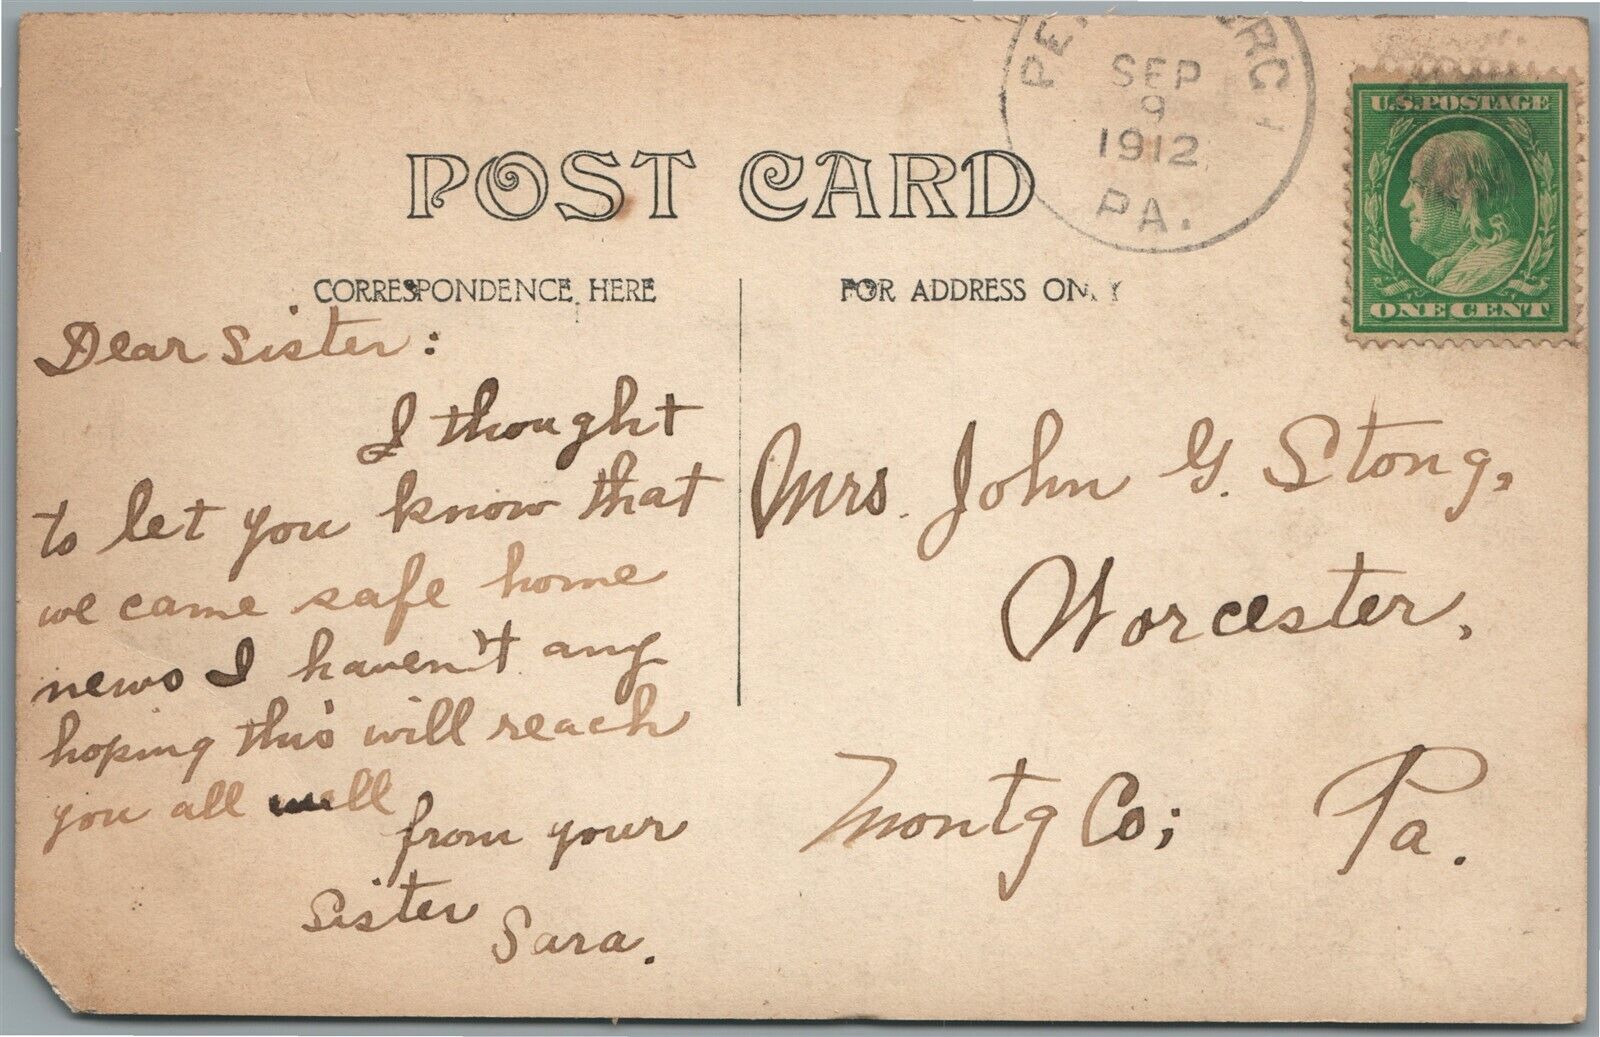 POST CARD
CORRESPONDENCE HERE
FOR ADDRESS ONLY
SEP
9
1912
PA.
U.S. POSTAGE
ONE CENT
Dear Sister:
I thought
to let you know that
we came safe home
news I haven't any
hoping this will reach
you all well
from your
Sister
Sara.
Mrs. John G. Stong,
Worcester,
Montg Co; Pa.